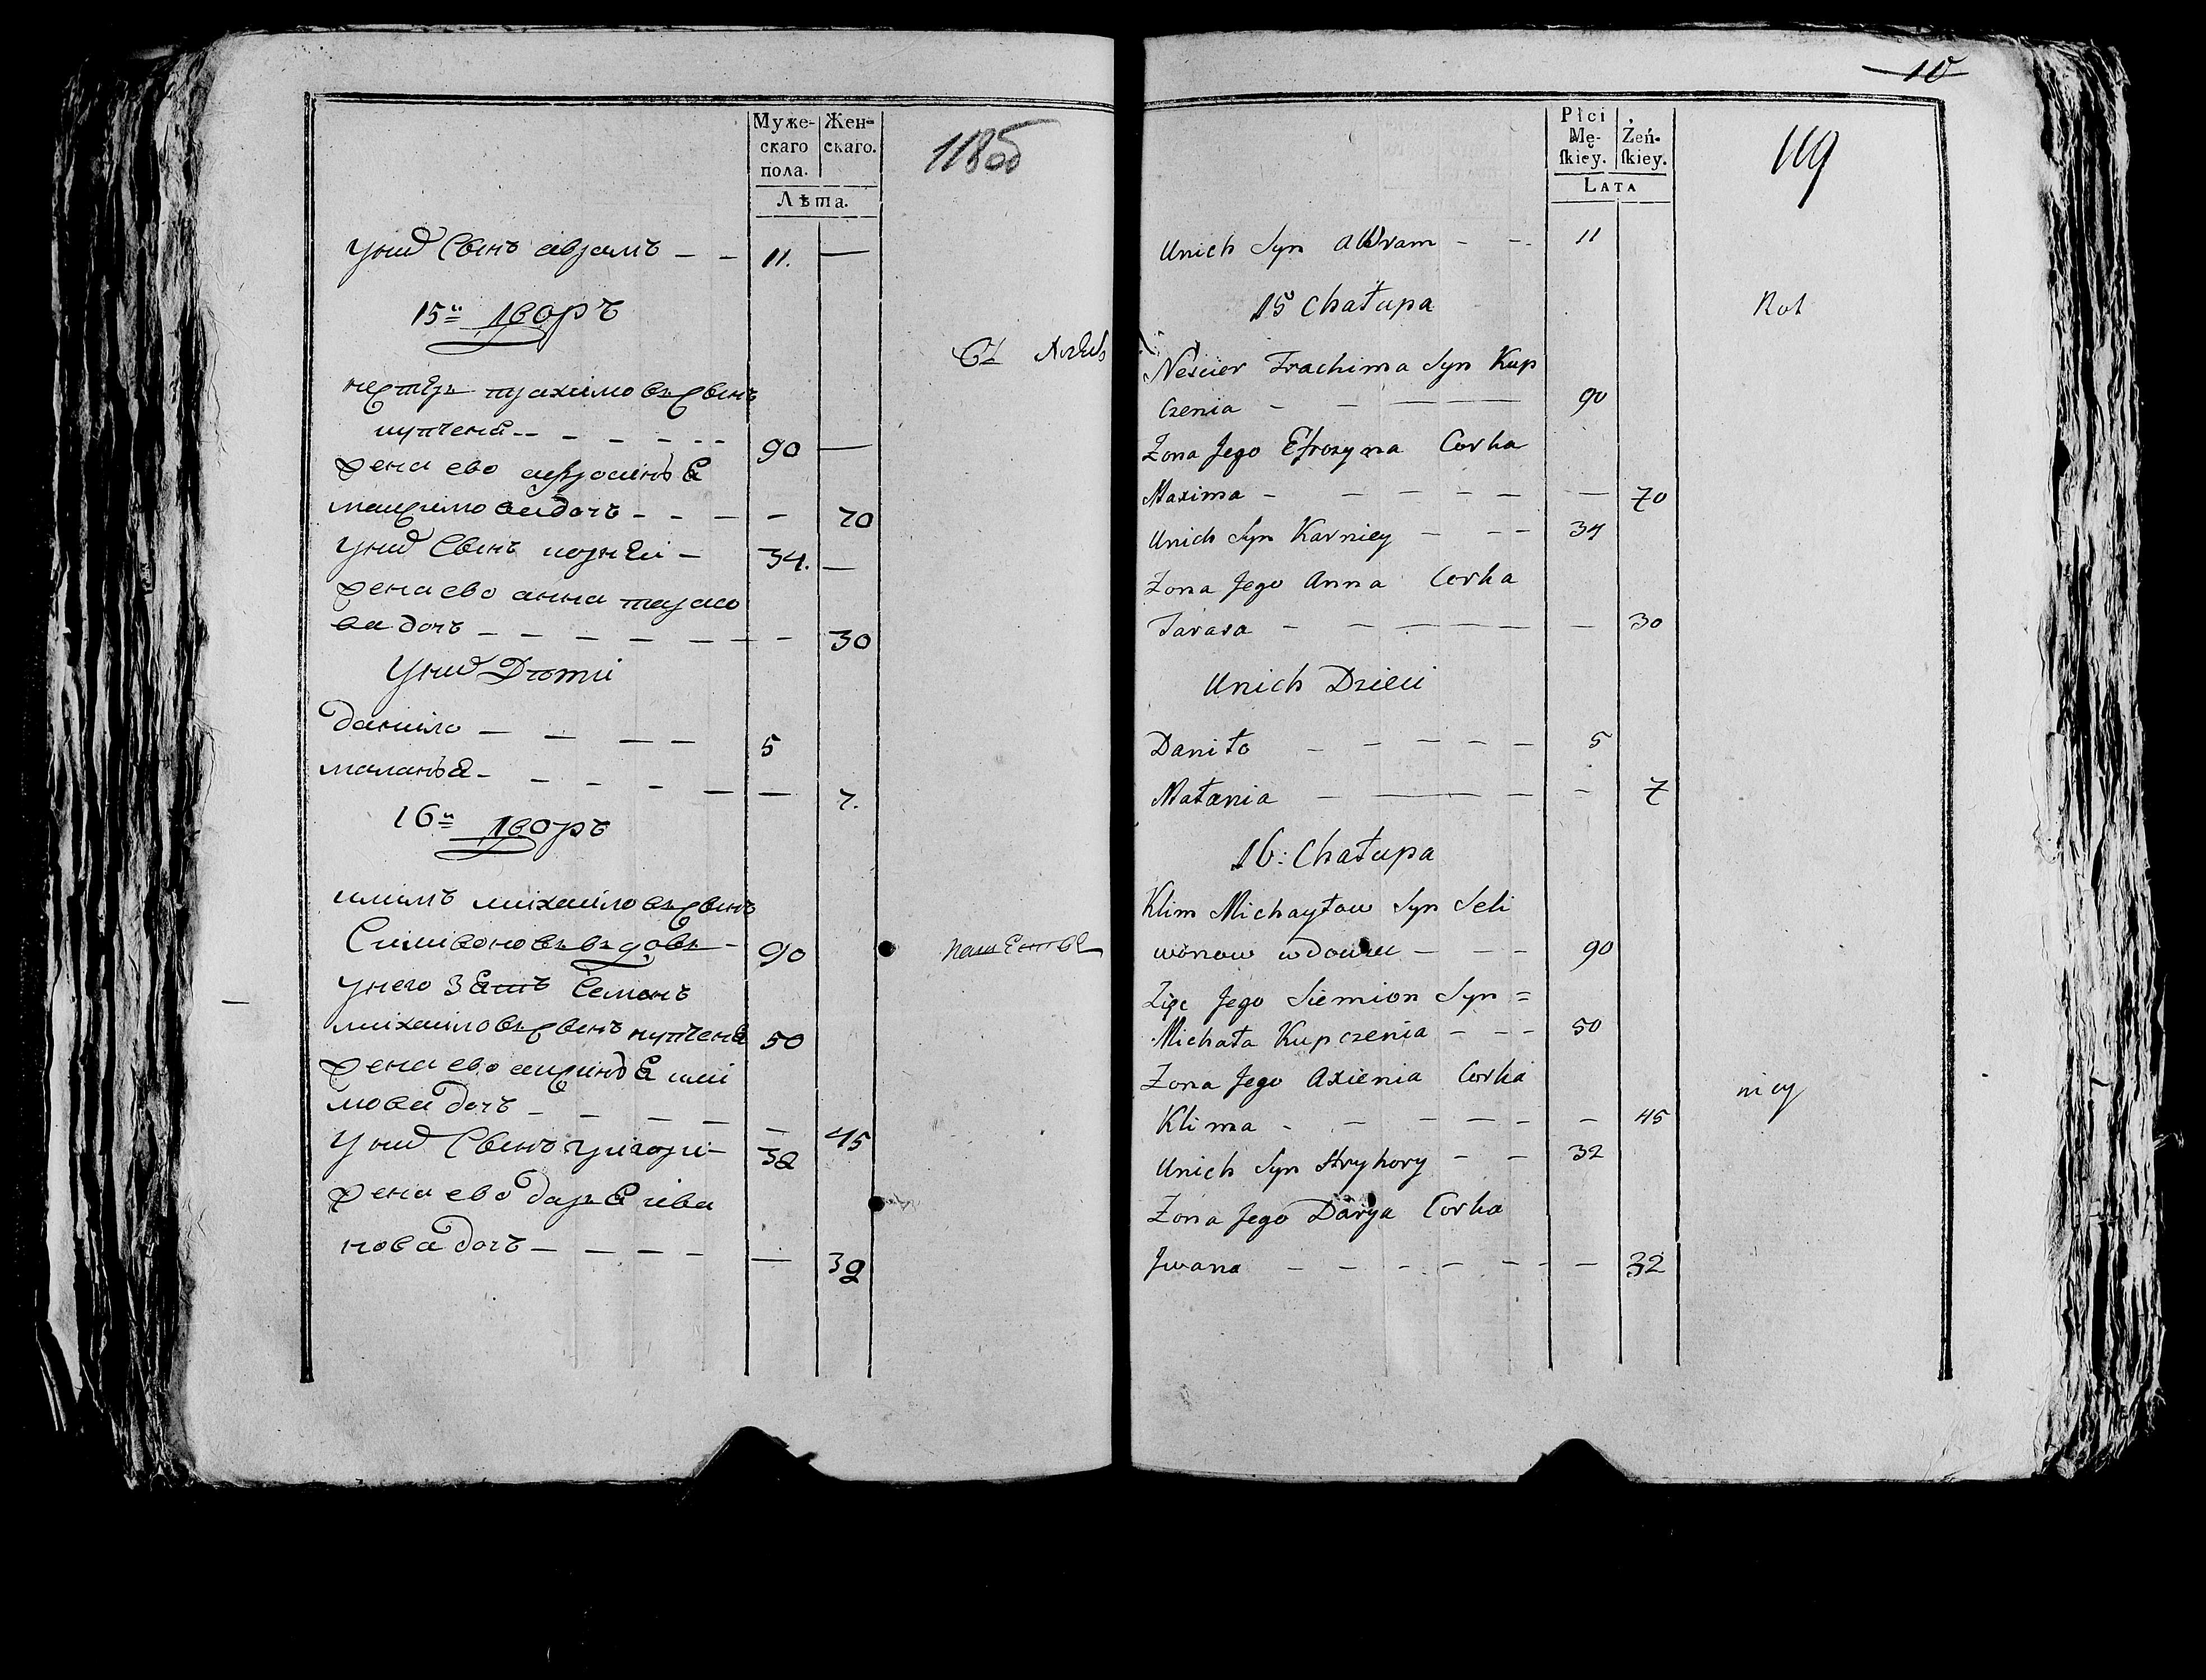 Муже-
скаго
пола.
Жен-
скаго.
Лѣта.
118об
у них Сынъ аврамъ — — 11. —
15й дворъ
нестеръ трахимовъ Сынъ
купченя — — — — 90 —
жена ево
максимова дочь — — — — 70
у них Сынъ корнеи — 34. —
жена ево анна тарасо
ва дочь — — — — — — — 30
У них Дѣти
данило — — — — 5
маланья — — — — — — 7.
16й дворъ
климъ михаиловъ Сынъ
Силивоновъ вдовъ — 90
у него зять Семенъ
михаиловъ Сынъ купченя 50
жена ево аксинья кли
мова дочь — — — — — 45
У них Сынъ григори — 32
жена ево дарья ива
нова дочь — — — — — 32
10
Płci
Mę-
ſkiey.
Żeń-
ſkiey.
LATA
119
Unich Syn Awram — — 11
15 Chałupa
Neścier Trachima Syn Kup
czenia — — — 90
Zona Jego Efrozyna Corka
Maxima — — — — — — 70
Unich Syn Karniey — — — 34
Zona Jego Anna Corka
Tarasa — — — — — — 30
Unich Dzieci
Daniło — — — — — 5
Małania — — — — — 7
16: Chałupa
Klim Michayłow Syn Seli
wonow wdowiec — — — 90
Zięc Jego Siemion Syn =
Michała Kupczenia — — — 50
Zona Jego Axienia Corka
Klima — — — — — — — 45
Unich Syn Hryhory — — 32
Zona Jego Darya Corka
Jwana — — — — — — — 32